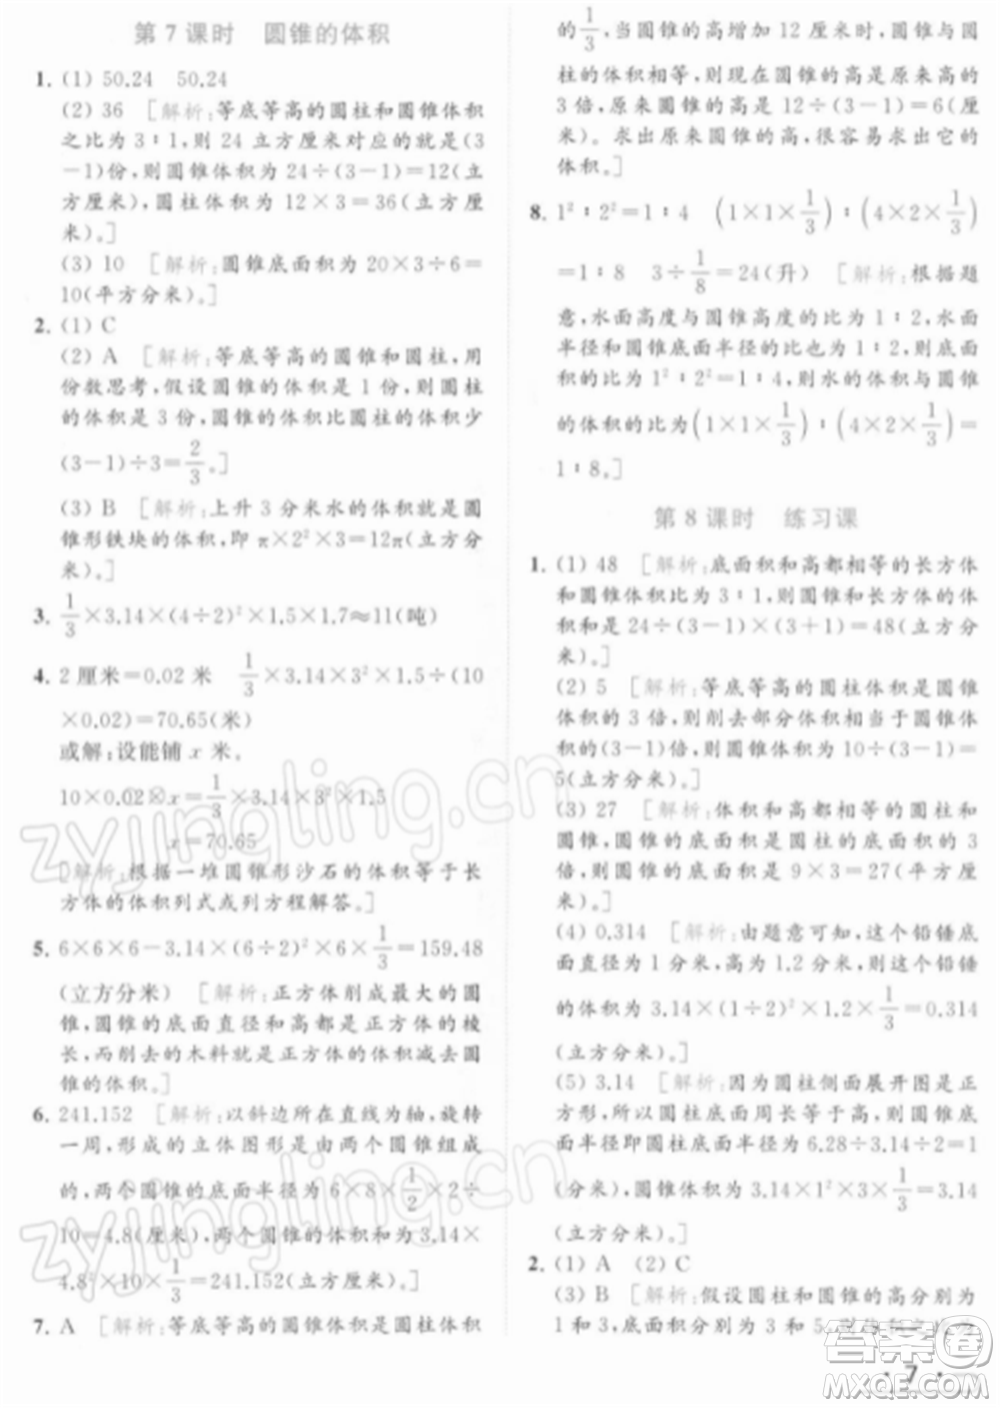 第 7 课时　圆锥的体积
1. (1) 50.24　50.24
(2) 36　[解析:等底等高的圆柱和圆锥体积
之比为 3∶1,则 24 立方厘米对应的就是(3
-1)份,则圆锥体积为 24÷(3-1)=12(立
方厘米),圆柱体积为 12×3=36(立方厘
米)。]
(3) 10　[解析:圆锥底面积为 20×3÷6=
10(平方分米)。]
2. (1) C
(2) A　[解析:等底等高的圆锥和圆柱,用
份数思考,假设圆锥的体积是 1 份,则圆柱
的体积是 3 份,圆锥的体积比圆柱的体积少
(3-1)÷3=2/3。]
(3) B　[解析:上升 3 分米水的体积就是圆
锥形铁块的体积,即 π×2²×3=12π(立方分
米)。]
3. 1/3×3.14×(4÷2)²×1.5×1.7≈11(吨)
4. 2 厘米=0.02 米　1/3×3.14×3²×1.5÷(10
×0.02)=70.65(米)
或解:设能铺 x 米。
10×0.02×x=1/3×3.14×3²×1.5
x=70.65
[解析:根据一堆圆锥形沙石的体积等于长
方体的体积列式或列方程解答。]
5. 6×6×6-3.14×(6÷2)²×6×1/3=159.48
(立方分米)　[解析:正方体削成最大的圆
锥,圆锥的底面直径和高都是正方体的棱
长,而削去的木料就是正方体的体积减去圆
锥的体积。]
6. 241.152　[解析:以斜边所在直线为轴,旋转
一周,形成的立体图形是由两个圆锥组成
的,两个圆锥的底面半径为 6×8×1/2×2÷
10=4.8(厘米),两个圆锥的体积为 3.14×
4.8²×10×1/3=241.152(立方厘米)。]
7. A　[解析:等底等高的圆锥体积是圆柱体积
的1/3,当圆锥的高增加 12 厘米时,圆锥与圆
柱的体积相等,则现在圆锥的高是原来高的
3 倍,原来圆锥的高是 12÷(3-1)=6(厘
米)。求出原来圆锥的高,很容易求出它的
体积。]
8. 1²∶2²=1∶4　(1×1×1/3)∶(4×2×1/3)
=1∶8　3÷1/8=24(升)　[解析:根据题
意,水面高度与圆锥高度的比为 1∶2,水面
半径和圆锥底面半径的比也为 1∶2,底面
积的比为 1²∶2²=1∶4,则水的体积与圆锥
的体积的比为(1×1×1/3)∶(4×2×1/3)=
1∶8。]
第 8 课时　练习课
1. (1) 48　[解析:底面积和高都相等的长方体
和圆锥体积比为 3∶1,则圆锥和长方体的体
积和是 24÷(3-1)×(3+1)=48(立方分
米)。]
(2) 5　[解析:等底等高的圆柱体积是圆锥
的 3 倍,则削去部分体积相当于圆锥体积的
(3-1)倍,则圆锥体积为 10÷(3-1)=
5(立方分米)。]
(3) 27　[解析:体积和高都相等的圆柱和
圆锥,圆锥的底面积是圆柱的底面积的 3
倍,则圆锥的底面积是 9×3=27(平方厘
米)。]
(4) 0.314　[解析:由题意可知,这个铅锤底
面直径为 1 分米,高为 1.2 分米,则这个铅锤
的体积为 3.14×(1÷2)²×1.2×1/3=0.314
(立方分米)。]
(5) 3.14　[解析:因为圆柱侧面展开图是正
方形,所以圆柱底面周长与高相等,则圆锥底
面半径即圆柱底面半径为 6.28÷3.14÷2=1
(分米),圆锥体积为 3.14×1²×3×1/3=3.14
(立方分米)。]
2. (1) A　(2) C
(3) B　[解析:假设圆柱和圆锥的高分别为
1 和 3,底面积分别为 3 和 5,
· 7 ·
zyjingling.cn
zyjingling.cn
答案卷
MXQE.COM